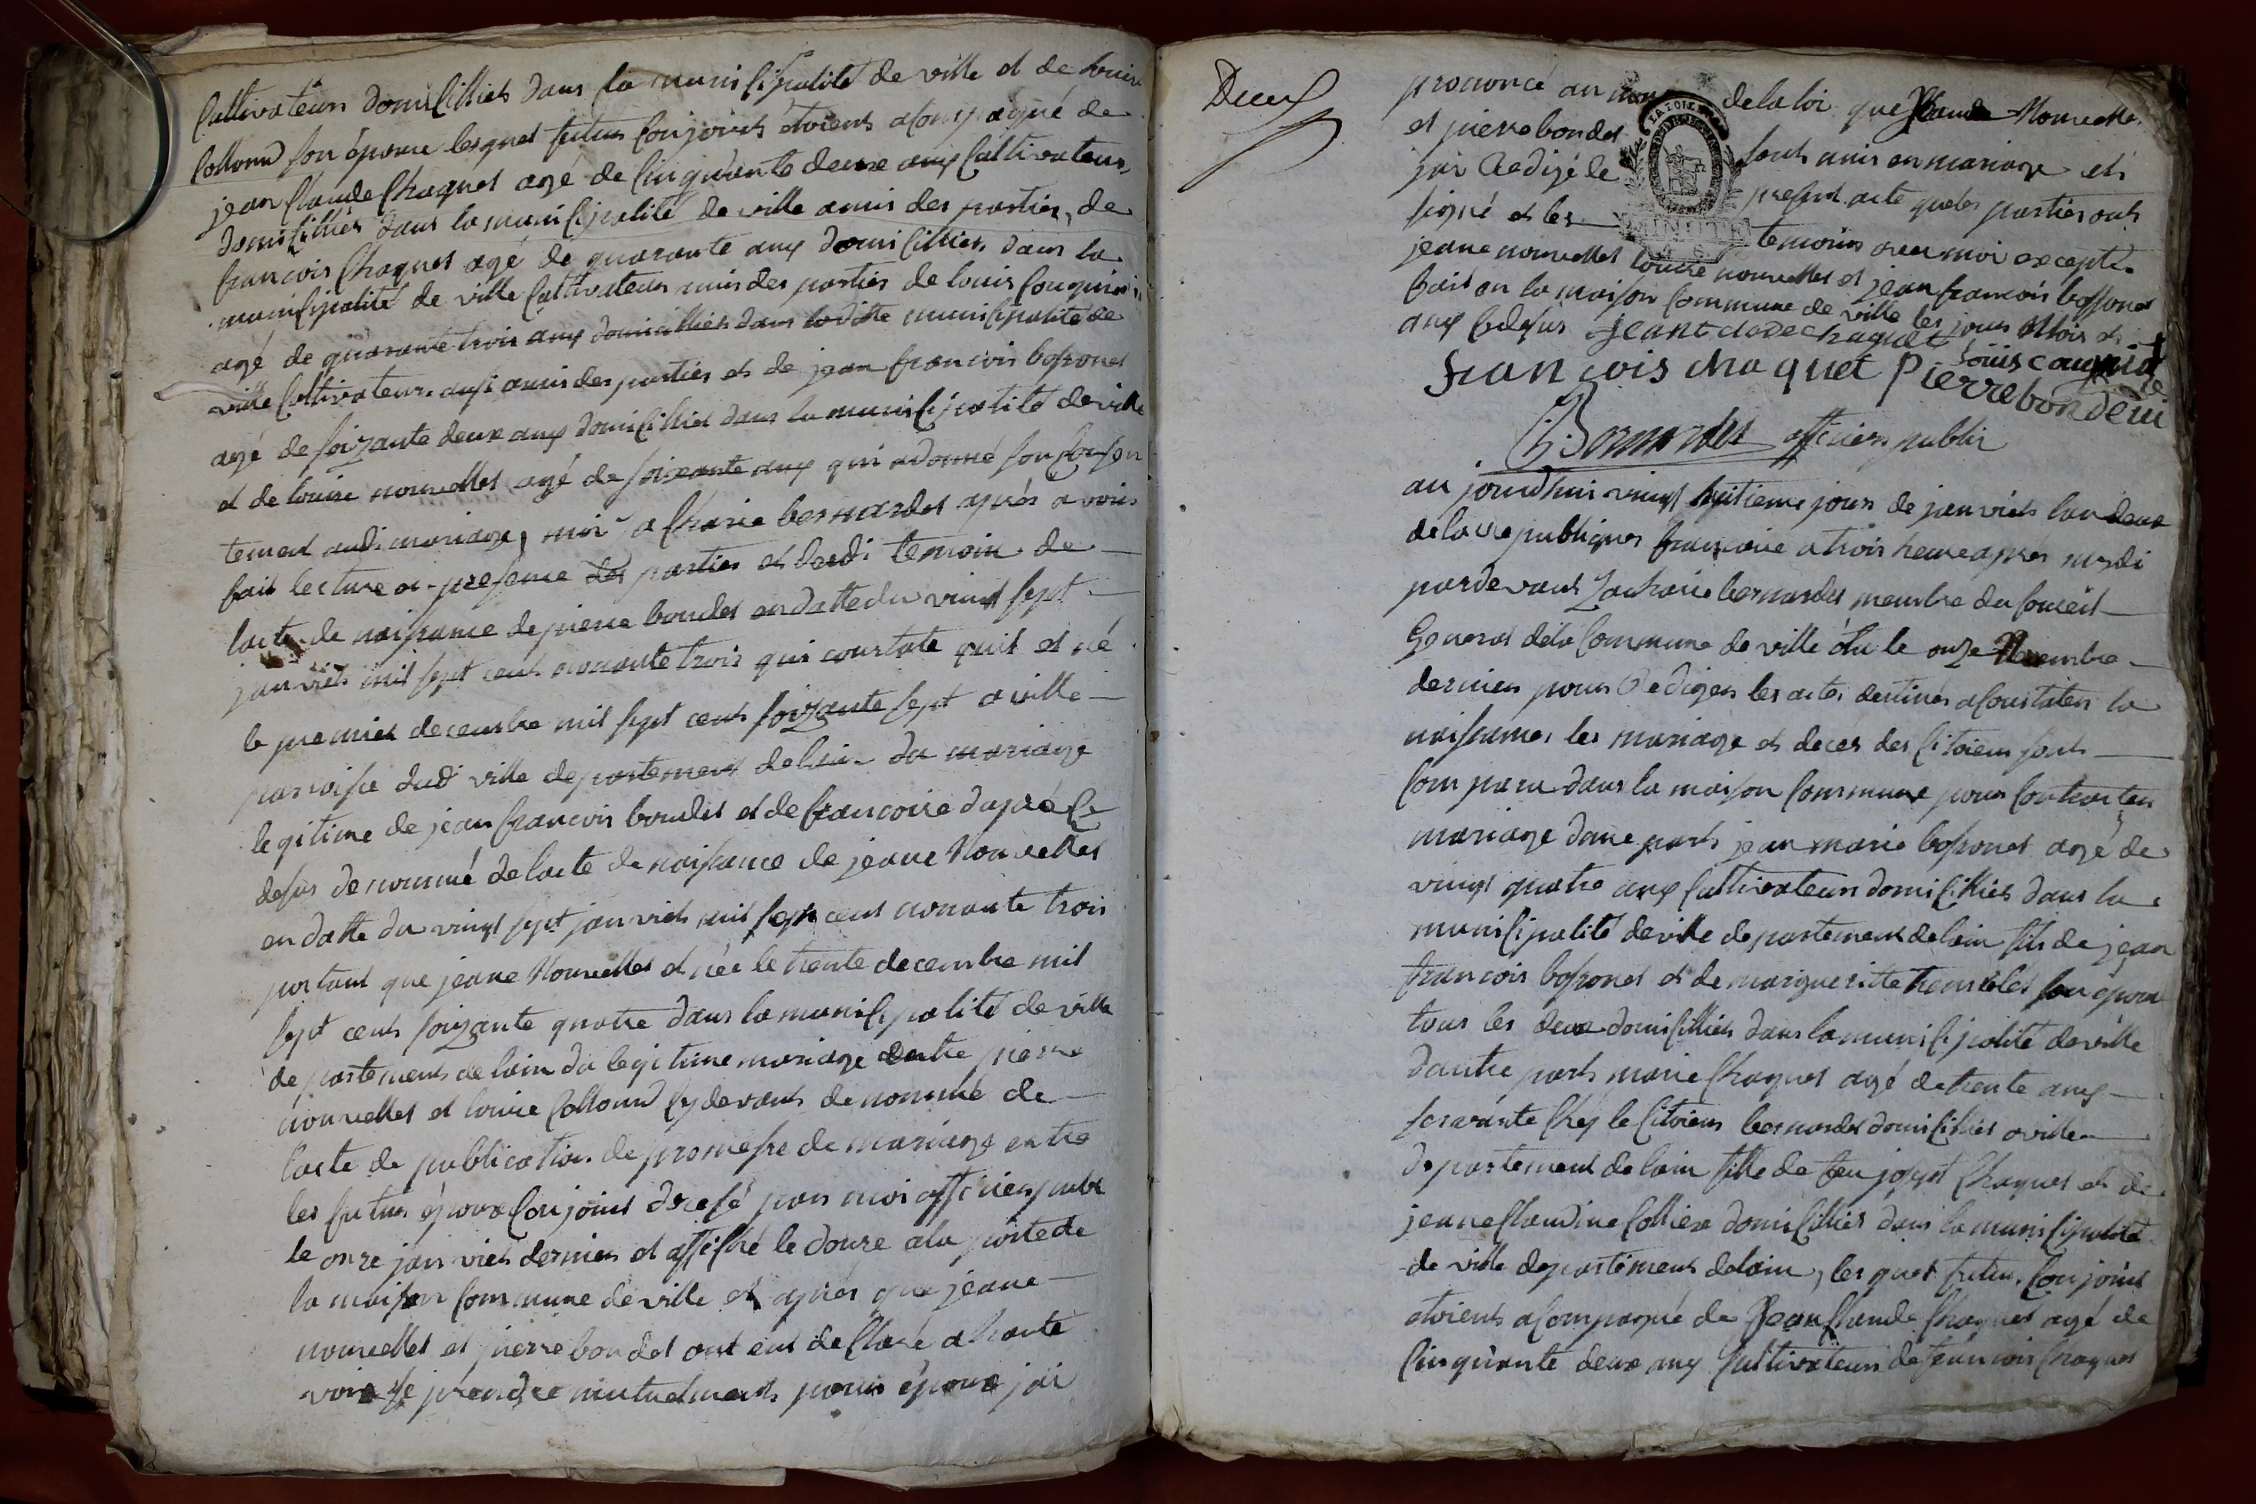 Cultivateur domicilliés dans la municipalité de ville et de louise
Collomd son épouse lesquel futur conjoint étoient acompagné de
jean Claude Chaquet agé de cinquante deux ans cultivateur,
domicillié dans la municipalité de ville amis des parties, de
francois Chaquet agé de quarante ans domicillier dans la
municipalité de ville cultivateur amis des parties de louis
agé de quarante trois ans domicilliés dans laditte municipalité de
ville cultivateur ausi amis des parties et de jean francois bossonet
agé de soizante deux ans domicillié dans la municipalité de ville
et de louise nouvellet agé de soixante ans qui a donné son conson
tement audi mariage, moi acharie bernardet aprés avoir
fait lecture en presence des parties et desdi temoin de
lacte de naissance de pierre bondet en datte du vint sept
janvier mil sept cent nonante trois qui constate quil et né
le premier decembre mil sept cent soizante sept a ville
paroisse dudi ville departement de lain du mariage
legitime de jean francois bondet et de francoise dupré Cy
desus denommé de lacte de naissance de jeane Nouvellet
en datte du vingt sept janvier mil sept cent nonante trois
portant que jeane Nouvellet et née le trente decembre mil
sept cent soizante quatre dans la municipalité de ville
departement de lain du legitime mariage dentre pierre
nouvellet et louise Collomd Cy devant denommé de
lacte de publication de promesse de mariage entre
les futur époux conjoint dressé par moi officier publi
le onze janvier dernier et affiché le douze a la porte de
la maison commune de ville et apres que jeane
nouvellet et pierre bondet ont eut déclaré a haute
voix se prendre mutuelment pour époux jai
Deux
prononcé au nom de la loi que Nouvellet
et pierre bondet sont unis en mariage et
jai redigé le present acte que les parties ont
signé et les temoins avec moi excepté
jeane nouvellet louise nouvellet et jean francois bossonet
fait en la maison commune de ville les jour Mois et
ans cidesus jean cladec haquet
francois chaquet pierre bondet louis
Bernardet officier public
aujourdhui vingt huitieme jour de janvier lan deux
de la republique francaise a trois heure aprés medi
pardevant Zacharie bernardet membre du conseil
General de la Commune de ville élu le onze Novembre
dernier pour Rediger les actes destinés a constater la
naissances les mariage et decés des citoien sont
comparu dans la maison commune pour contracter
mariage dune part jean marie bossonet agé de
vingt quatre ans cultivateur domicilliés dans la
municipalité de ville departement de lain fils de jean
francois bossonet et de margueritte son épouse
tous les deux domicilliés dans la municipalité de ville
dautre part marie Chaquet agé de trente ans
servante chez le citoien bernardet domicilliés a ville
departement de lain fille de feu josept Chaquet et de
jeane Claudine domicilliés dans la municipalité
de ville departement delain, lesquel futur conjoint
etoient acompagné de Jean Claude Chaquet agé de
cinquante deux ans cultivateur de francois Chaquet